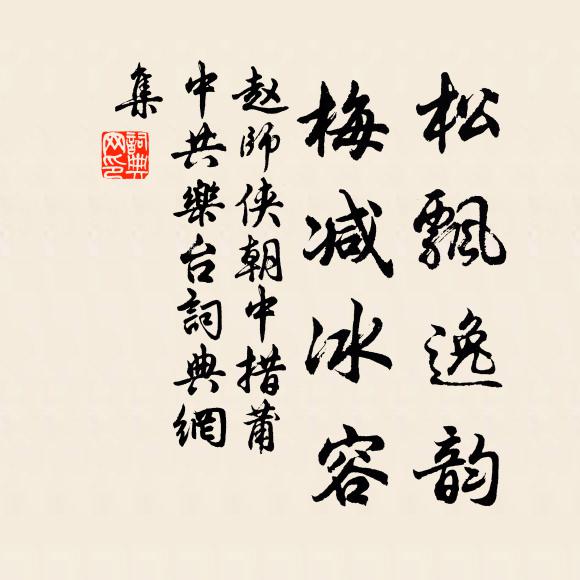 松飄逸韵
梅减冰容
赵師侠朝中措莆
中共樂台詞典網
集
詞典
网印